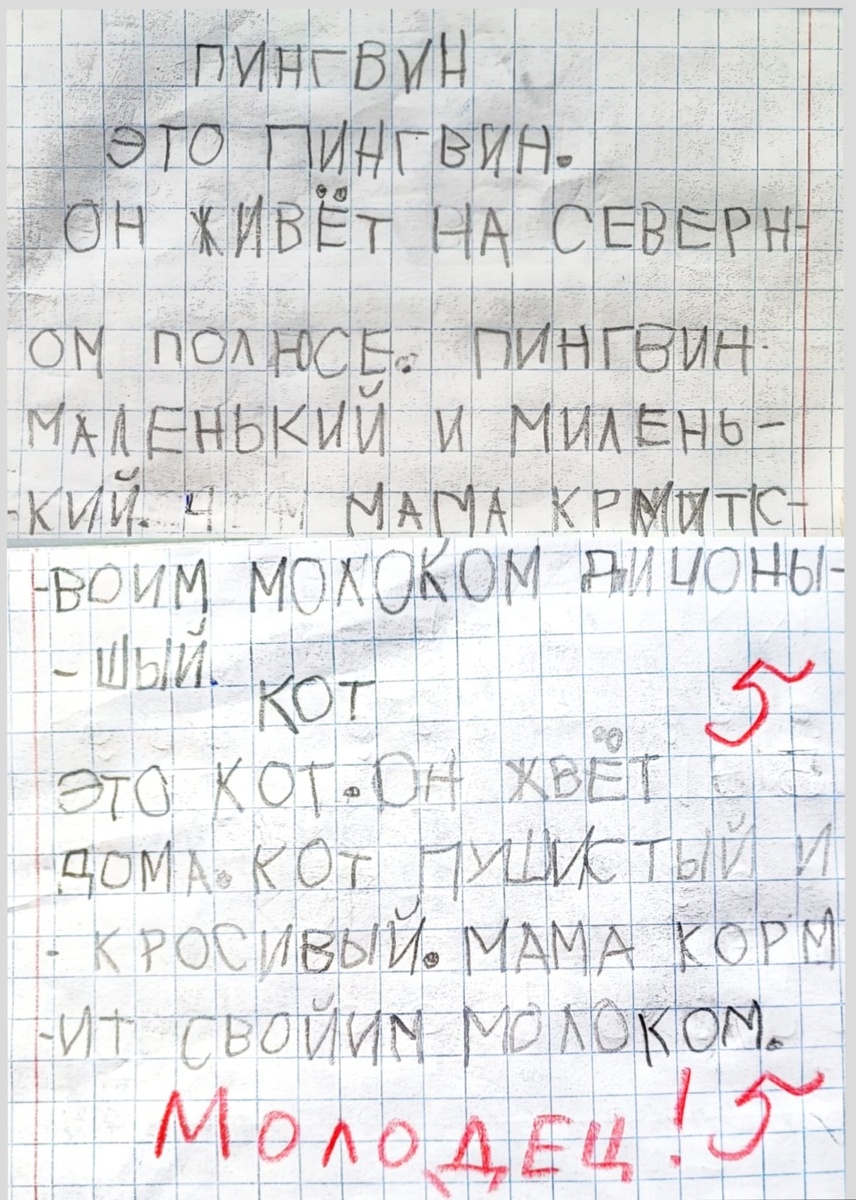 ПИНГВИН
ЭТО ПИНГВИН.
ОН ЖИВЁТ НА СЕВЕРН-
ОМ ПОЛЮСЕ. ПИНГВИН
МАЛЕНЬКИЙ И МИЛЕНЬ-
-КИЙ. МАМА
-ВОИМ МОЛОКОМ ДИЧОНЫ-
- ШЫЙ.
КОТ
5
ЭТО КОТ. ОН ЖВЁТ
ДОМА. КОТ ПУШИСТЫЙ И
- КРОСИВЫЙ. МАМА КОРМ
-ИТ СВОЙИМ МОЛОКОМ.
МОЛОДЕЦ! 5